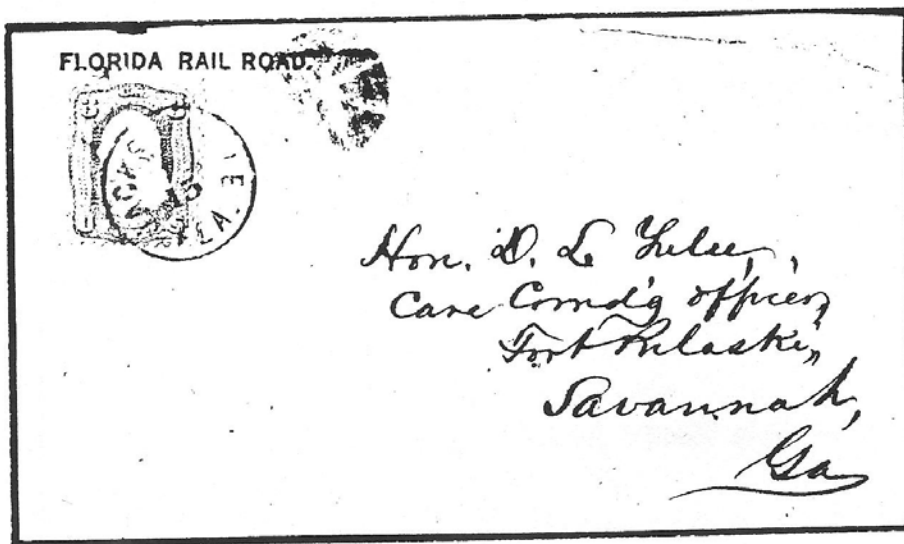 FLORIDA RAIL ROAD.
Hon. D. L Yulee,
Care Comd'g officer,
Fort Pulaski,
Savannah,
Ga